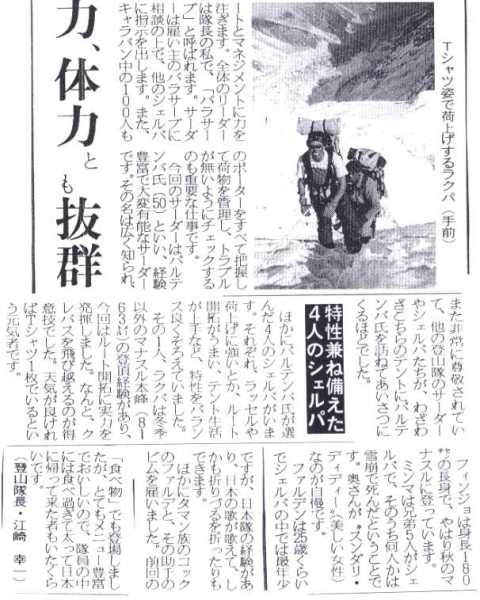 Ｔシャツ姿で荷上げするラクパ（手前）
力、体力とも抜群
ートとマネジメントに力を
注ぎます。全体のリーダー
は隊長の私で、「バラサー
ブ」と呼ばれます。サーダ
ーは雇い主のバラサーブに
相談の上で、他のシェルパ
に指示を出します。また、
キャラバン中の100人も
のポーターをすべて把握し
て荷物を管理し、トラブル
が無いようにチェックする
のも重要な仕事です。
今回のサーダーはパルデ
ンバ氏（50）といい、経験
豊富で大変有能なサーダー
です。その名は広く知られ、
また非常に尊敬されてい
て、他の登山隊のサーダー
やシェルパたちが、わざわ
ざこちらのテントにパルデ
ンバ氏を訪ねてあいさつに
くるほどでした。
特性兼ね備えた
4人のシェルパ
ほかにパルデンバ氏が選
んだ4人のシェルパがいま
す。それぞれ、ラッセルや
荷上げに強いとか、ルート
開拓がうまい、テント生活
が上手など、特性をバラン
ス良くそろえていました。
その1人、ラクパは冬季
以外のマナスル本峰（81
63㍍）の登頂経験があり、
今回はルート開拓に実力を
発揮しました。なんと、ク
レバスを飛び越えるのが得
意でした。天気が良ければ
ばTシャツ1枚でいるとい
う元気者です。
フィンジョは身長180
㌢の長身で、やはり秋のマ
ナスルに登っています。
ミンマは兄弟5人がシェ
ルパで、そのうち何人かは
雪崩で死んだということで
す。奥さんが〝スンダリ・
ディディー〟（美しい女性）
なのが自慢です。
ファルデンは25歳くらい
でシェルパの中では最年少
ですが、日本隊の経験があ
り、日本の歌が歌えて、し
かも折りづるを折ったりも
できます。
ほかにタマン族のコック
のファルデと、その助手の
ビムを雇いました。前回の
「食べ物」でも登場しまし
たが、とてもメニュー豊富
でおいしいので、隊員の中
には食べ過ぎて太って日本
に帰って来た者もいたくら
いです。
（登山隊長・江崎　幸一）